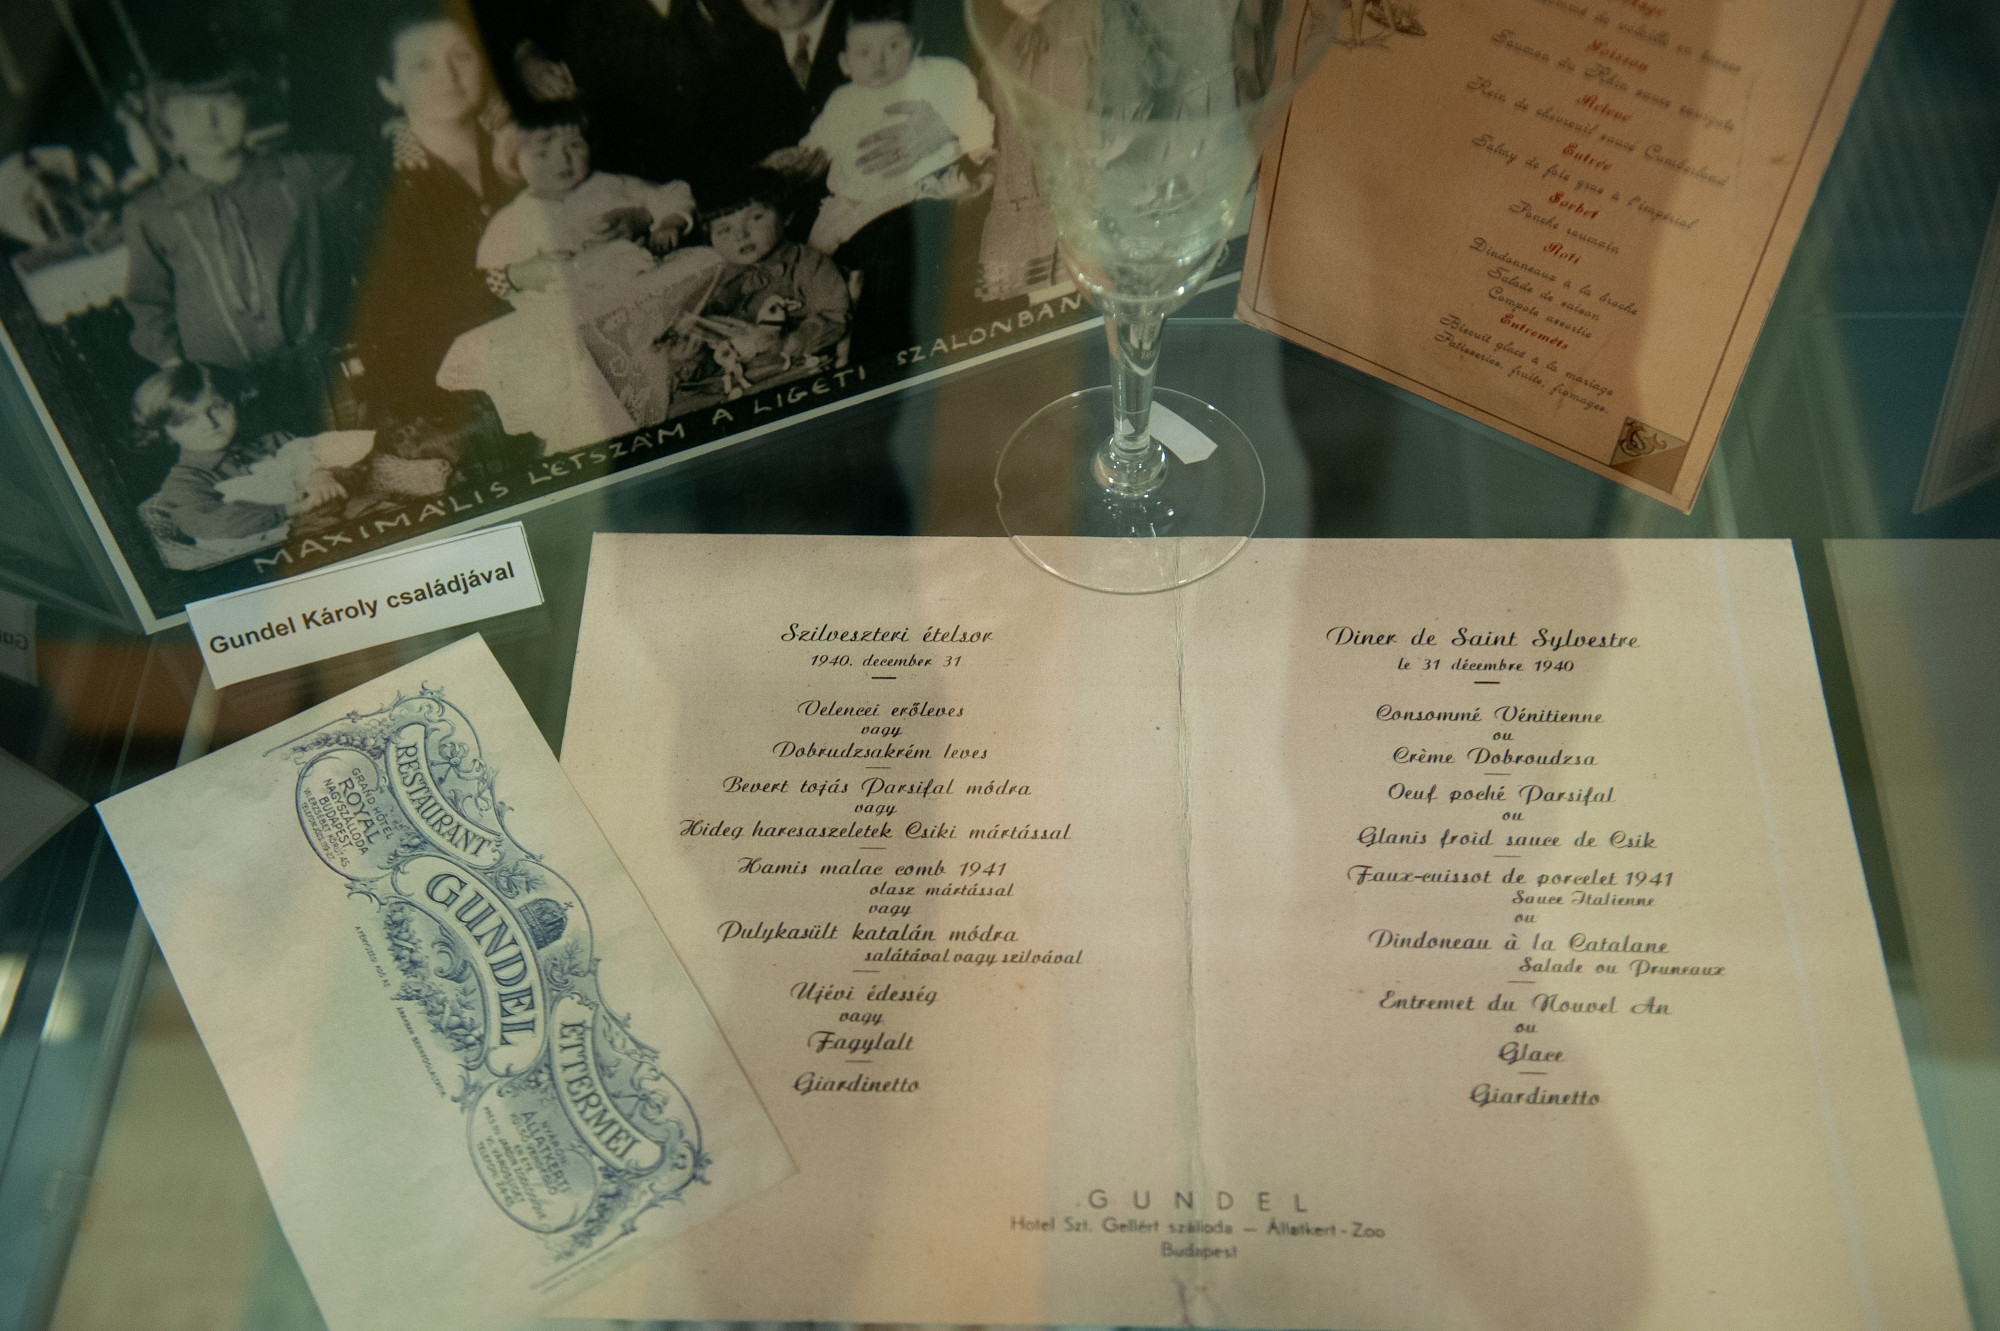 MAXIMÁLIS LÉTSZÁM A LIGETI SZALONBAN
Gundel Károly családjával
Poisson
Saumon du Rhin sauce
Relevé
Rein de chevreuil sauce Cumberland
Entrée
Salmy de foie gras à l'impérial
Sorbet
Ponche roumain
Roti
Dindonneaux à la broche
Salade de saison
Compote assortie
Entremêts
Biscuit glacé à la mariage
Patisseries, fruits, fromages.
RESTAURANT
GUNDEL
ÉTTERMEI
GRAND HÔTEL
ROYAL
NAGYSZÁLLODA
BUDAPEST
VII. ERZSÉBET KÖRÚT 45.
NYÁRON
ÁLLATKERTI
Szilveszteri ételsor
1940. december 31
Velencei erőleves
vagy
Dobrudzsakrém leves
Bevert tojás Parsifal módra
vagy
Hideg harcsaszeletek Csiki mártással
Hamis malac comb 1941
olasz mártással
vagy
Pulykasült katalán módra
salátával vagy szilvával
Ujévi édesség
vagy
Fagylalt
Giardinetto
Diner de Saint Sylvestre
le 31 décembre 1940
Consommé Vénitienne
ou
Crème Dobroudzsa
Oeuf poché Parsifal
ou
Glanis froid sauce de Csik
Faux-cuissot de porcelet 1941
Sauce Italienne
ou
Dindoneau à la Catalane
Salade ou Pruneaux
Entremet du Nouvel An
ou
Glace
Giardinetto
GUNDEL
Hotel Szt. Gellért szálloda — Állatkert - Zoo
Budapest